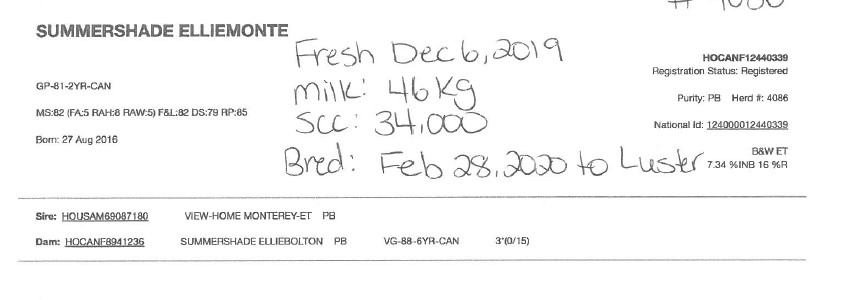 SUMMERSHADE ELLIEMONTE
Fresh Dec 6, 2019
HOCANF12440339
Registration Status: Registered
GP-81-2YR-CAN
milk: 46 Kg
Purity: PB Herd #: 4086
MS:82 (FA:5 RAH:8 RAW:5) F&L:82 DS:79 RP:85
SCC: 34,000
National Id: 124000012440339
Born: 27 Aug 2016
B&W ET
Bred: Feb 28, 2020 to Luster
7.34 %INB 16 %R
Sire: HOUSAM69087180 VIEW-HOME MONTEREY-ET PB
Dam: HOCANF8941236 SUMMERSHADE ELLIEBOLTON PB VG-88-6YR-CAN 3*(0/15)